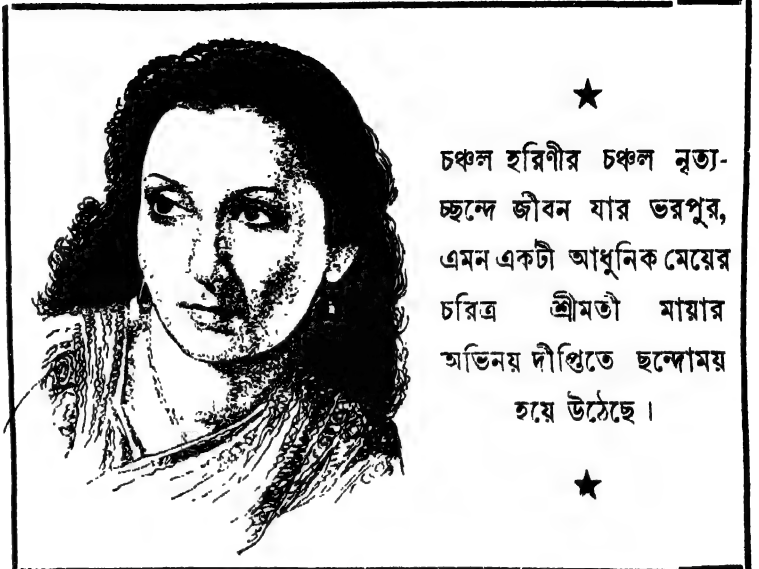 চঞ্চল হরিণীর চঞ্চল নৃত্য-
চ্ছন্দে জীবন যার ভরপুর,
এমন একটী আধুনিক মেয়ের
চরিত্র শ্রীমতী মায়ার
অভিনয় দীপ্তিতে ছন্দোময়
হয়ে উঠেছে।